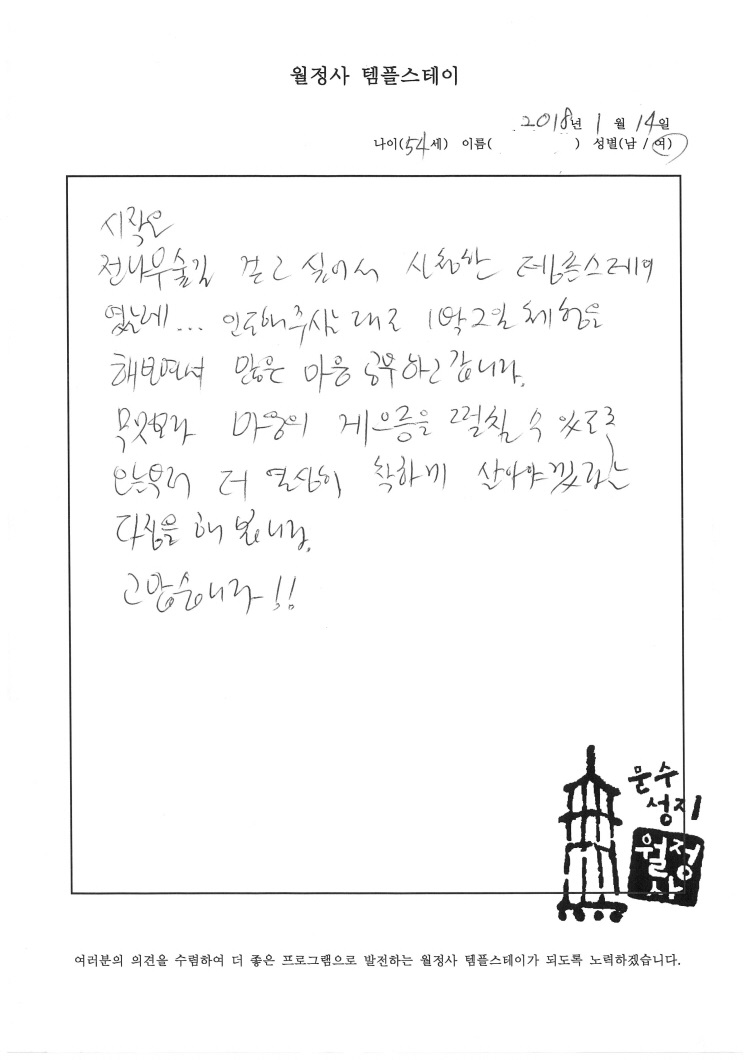 월정사 템플스테이
2018년 1월 14일
나이(54세) 이름( ) 성별(남 / 여)
시작은
전나무숲길 걷고 싶어서 신청한 템플스테이
였는데... 인도해주시는 대로 1박2일 체험을
해보면서 많은 마음 공부하고 갑니다.
무엇보다 마음의 게으름을 떨칠 수 있도록
오늘부터 더 열심히 착하게 살아야겠다는
다짐을 해 봅니다.
고맙습니다!!
문수
성지
월정
사
여러분의 의견을 수렴하여 더 좋은 프로그램으로 발전하는 월정사 템플스테이가 되도록 노력하겠습니다.